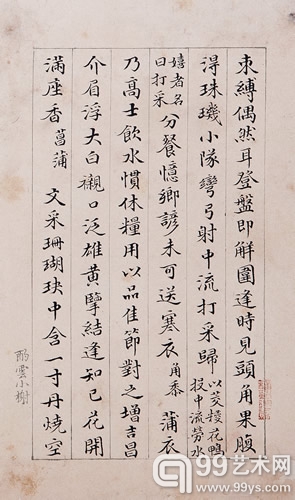 束縛偶然耳登盤即解圍逢時見頭角果腹
得珠璣小隊彎弓射中流打采歸 以茭授花鴨投中流勞水
嬉者名曰打采 分餐憶鄉諺未可送寒衣 角黍 蒲衣
乃高士飲水慣休糧用以品佳節對之增吉昌
介眉浮大白襯口泛雄黃擘結逢知己花開
滿座香 菖蒲 文采珊瑚玦中含一寸丹燒空
雲小榭
99艺术网
www.99ys.com